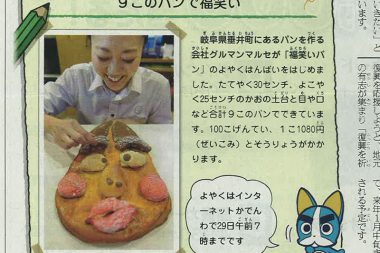 ９このパンで福笑い
岐阜県垂井町にあるパンを作る
会社グルマンマルセが「福笑いパ
ン」のよやくはんばいをはじめまし
した。たてやく30センチ、よこや
く25センチのかおの土台と目や口
など合計９このパンでできていま
す。100こげんてい、１こ1080円
（ぜいこみ）とそうりょうがかか
ります。
よやくはインタ
ーネットかでん
わで29日午前７
時までです
復興を応援
しようと、地元
の有志が集まり、「復興を祈
で、来年１月中旬
される予定です。